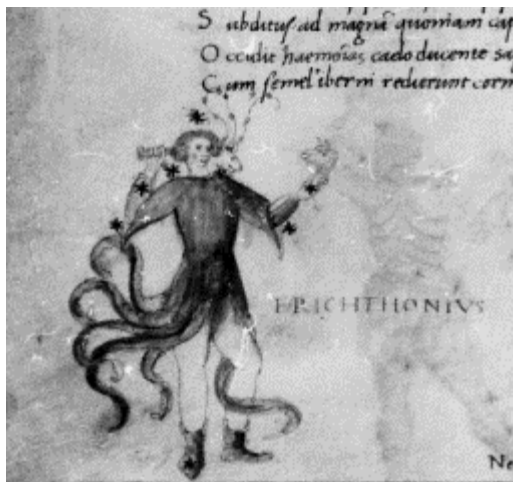 S ubditus ad magnā quoniam cap
O ccidit haemōias caelo ducente sa
C um semel iberni redierunt corn
ERICHTHONIVS
Ne